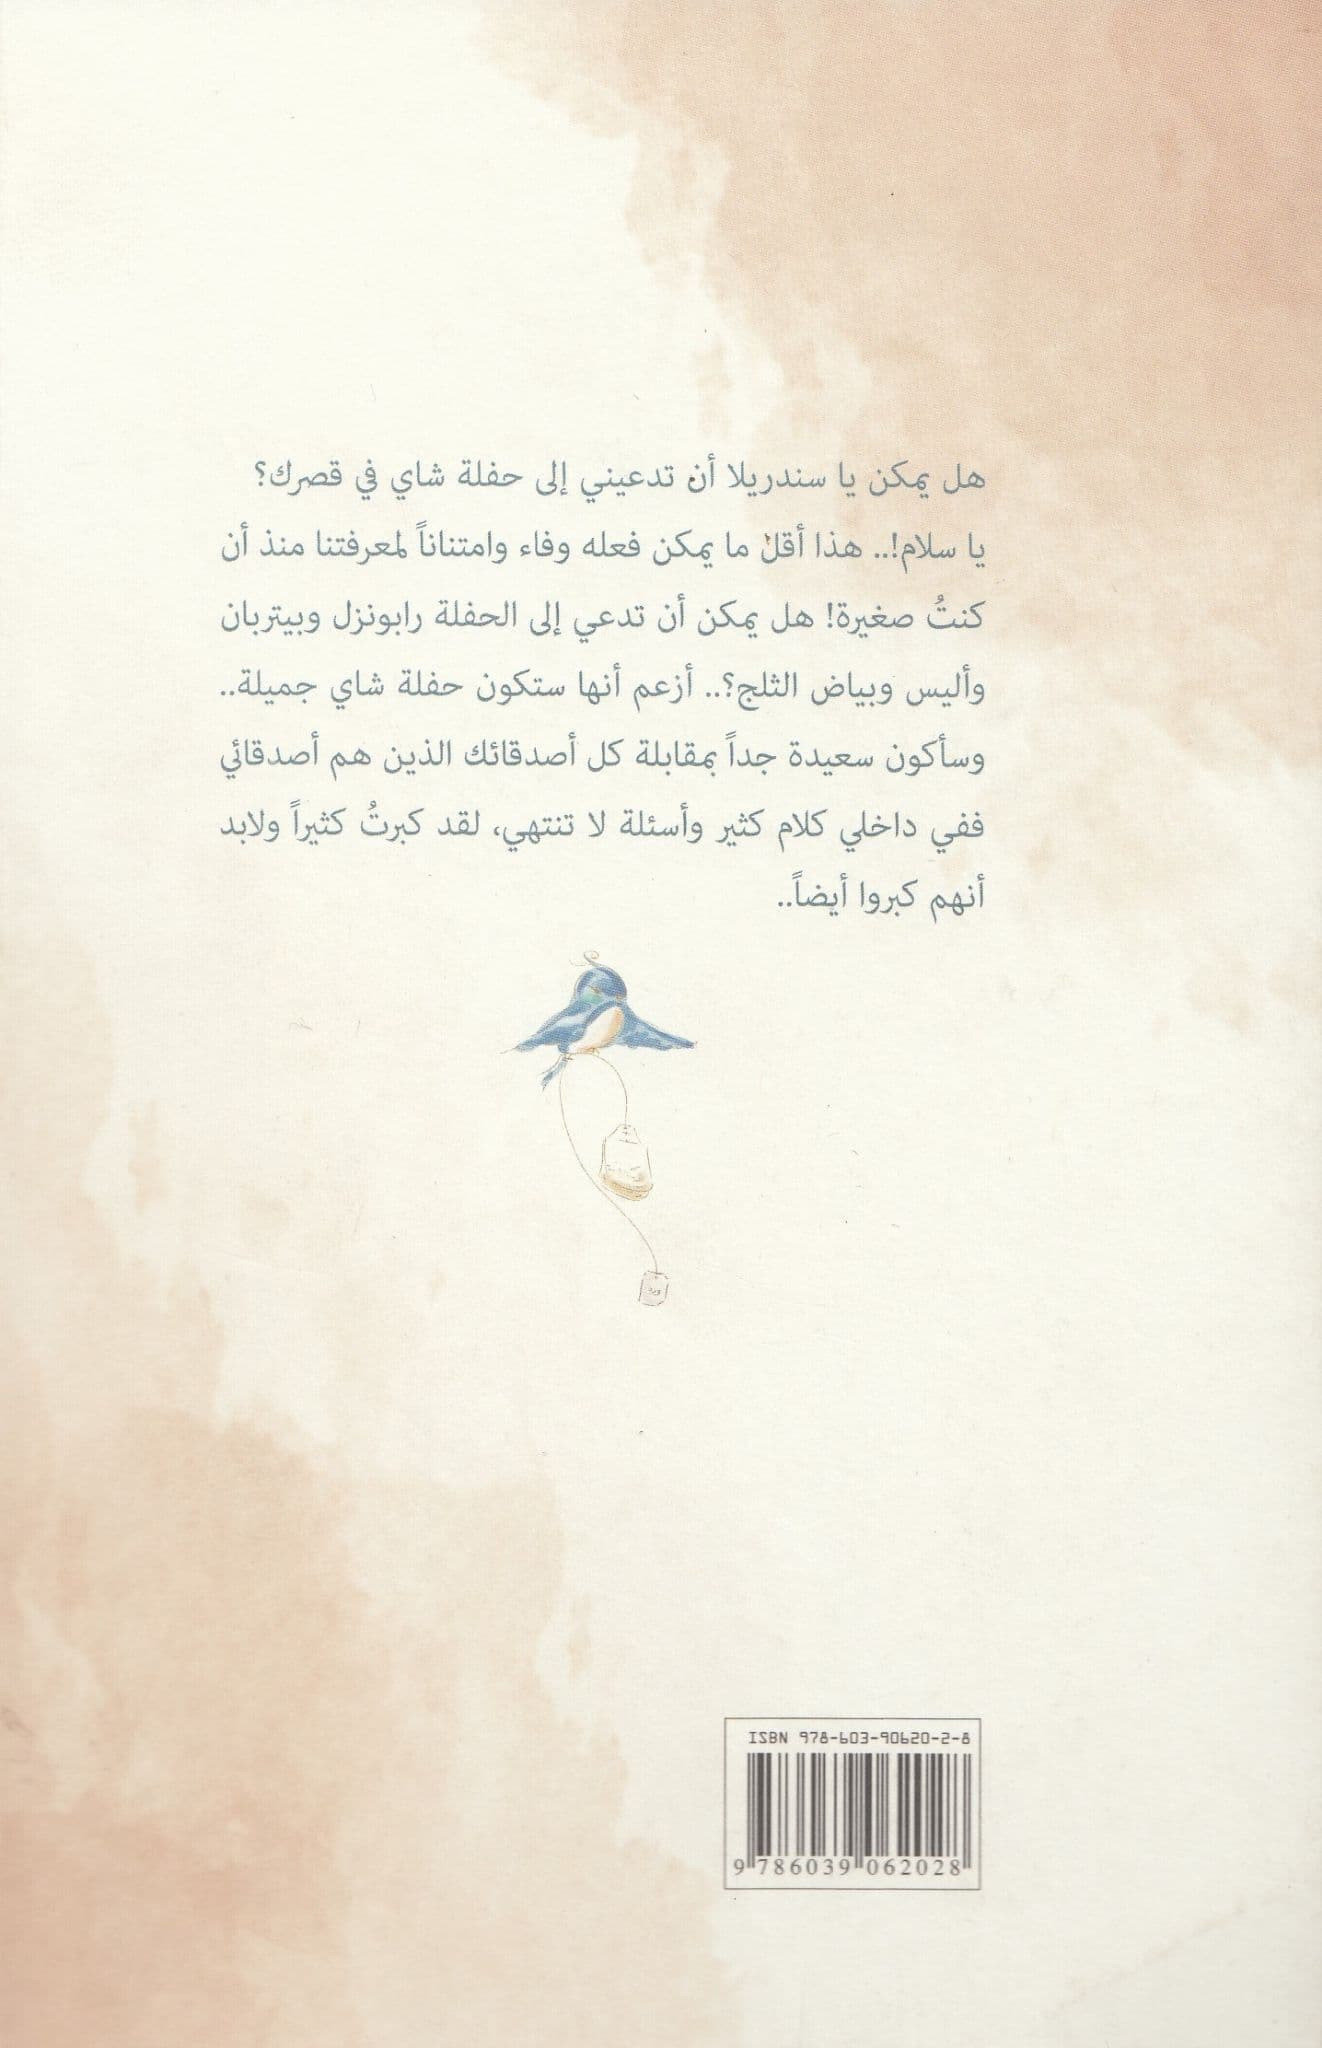 هل يمكن يا سندريلا أن تدعيني إلى حفلة شاي في قصرك؟
يا سلام!.. هذا أقل ما يمكن فعله وفاء وامتناناً لمعرفتنا منذ أن
كنتُ صغيرة! هل يمكن أن تدعي إلى الحفلة رابونزل وبيتربان
وأليس وبياض الثلج؟.. أزعم أنها ستكون حفلة شاي جميلة..
وسأكون سعيدة جداً بمقابلة كل أصدقائك الذين هم أصدقائي
ففي داخلي كلام كثير وأسئلة لا تنتهي، لقد كبرتُ كثيراً ولابد
أنهم كبروا أيضاً..
ISBN 978-603-90620-2-8
9 786039 062028